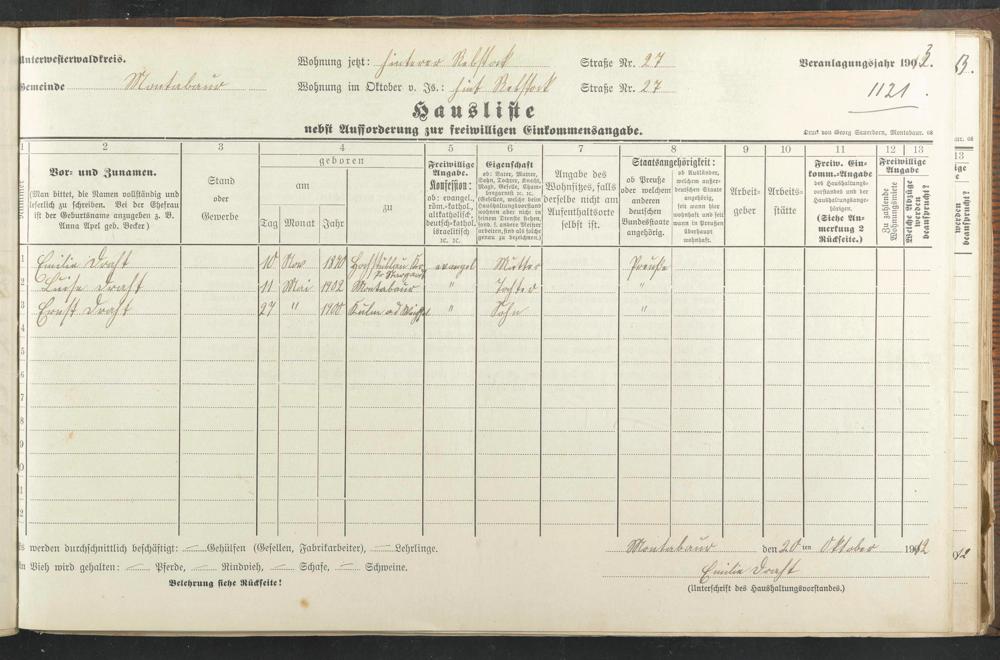 Unterwesterwaldkreis.
Wohnung jetzt: hinterer Rebstock Straße Nr. 27
Veranlagungsjahr 1903.
Gemeinde Montabaur
Wohnung im Oktober v. Js.: hint Rebstock Straße Nr. 27
1121.
Hausliste
nebst Aufforderung zur freiwilligen Einkommensangabe.
Druck von Georg Sauerborn, Montabaur. 08
1 2 3 4 5 6 7 8 9 10 11 12 13
Nummer
Vor- und Zunamen.
(Man bittet, die Namen vollständig und
leserlich zu schreiben. Bei der Ehefrau
ist der Geburtsname anzugeben z. B.
Anna Apel geb. Becker)
Stand
oder
Gewerbe
geboren
am
zu
Tag Monat Jahr
Freiwillige
Angabe.
Konfession:
ob: evangel.,
röm.-kathol.,
altkatholisch,
deutsch-kathol.
israelitisch
ꝛc. ꝛc.
Eigenschaft
ob: Vater, Mutter,
Sohn, Tochter, Knecht,
Magd, Geselle, Cham-
bregarnist ꝛc. ꝛc.
(Gesellen, welche beim
Haushaltungsvorstand
wohnen aber nicht in
seinen Diensten stehen,
sond. f. andere Meister
arbeiten, sind als solche
genau zu bezeichnen.)
Angabe des
Wohnsitzes, falls
derselbe nicht am
Aufenthaltsorte
selbst ist.
Staatsangehörigkeit:
ob Preuße
oder welchem
anderen
deutschen
Bundesstaate
angehörig.
ob Ausländer,
welchem außer-
deutschen Staate
angehörig,
seit wann hier
wohnhaft und seit
wann in Preußen
überhaupt
wohnhaft.
Arbeit-
geber
Arbeits-
stätte
Freiw. Ein-
komm.-Angabe
des Haushaltungs-
vorstandes und der
Haushaltungsange-
hörigen.
(Siehe An-
merkung 2
Rückseite.)
Freiwillige
Angabe
Zu zahlende
Wohnungsmiete
Welche Abzüge
werden
beansprucht?
1 Emilie Draht 10 Nov 1870 evangel Mutter Preuße
2 Luise Draht 11 Mai 1902 Montabaur " Tochter "
3 Ernst Draht 27 " 1900 Kulm a d Weichsel " Sohn "
4
5
6
7
8
9
0
1
2
Es werden durchschnittlich beschäftigt: — Gehülfen (Gesellen, Fabrikarbeiter), — Lehrlinge.
Montabaur den 20 ten Oktober 1912
An Vieh wird gehalten: — Pferde, — Rindvieh, — Schafe, — Schweine.
Emilie Draht
Belehrung siehe Rückseite!
(Unterschrift des Haushaltungsvorstandes.)